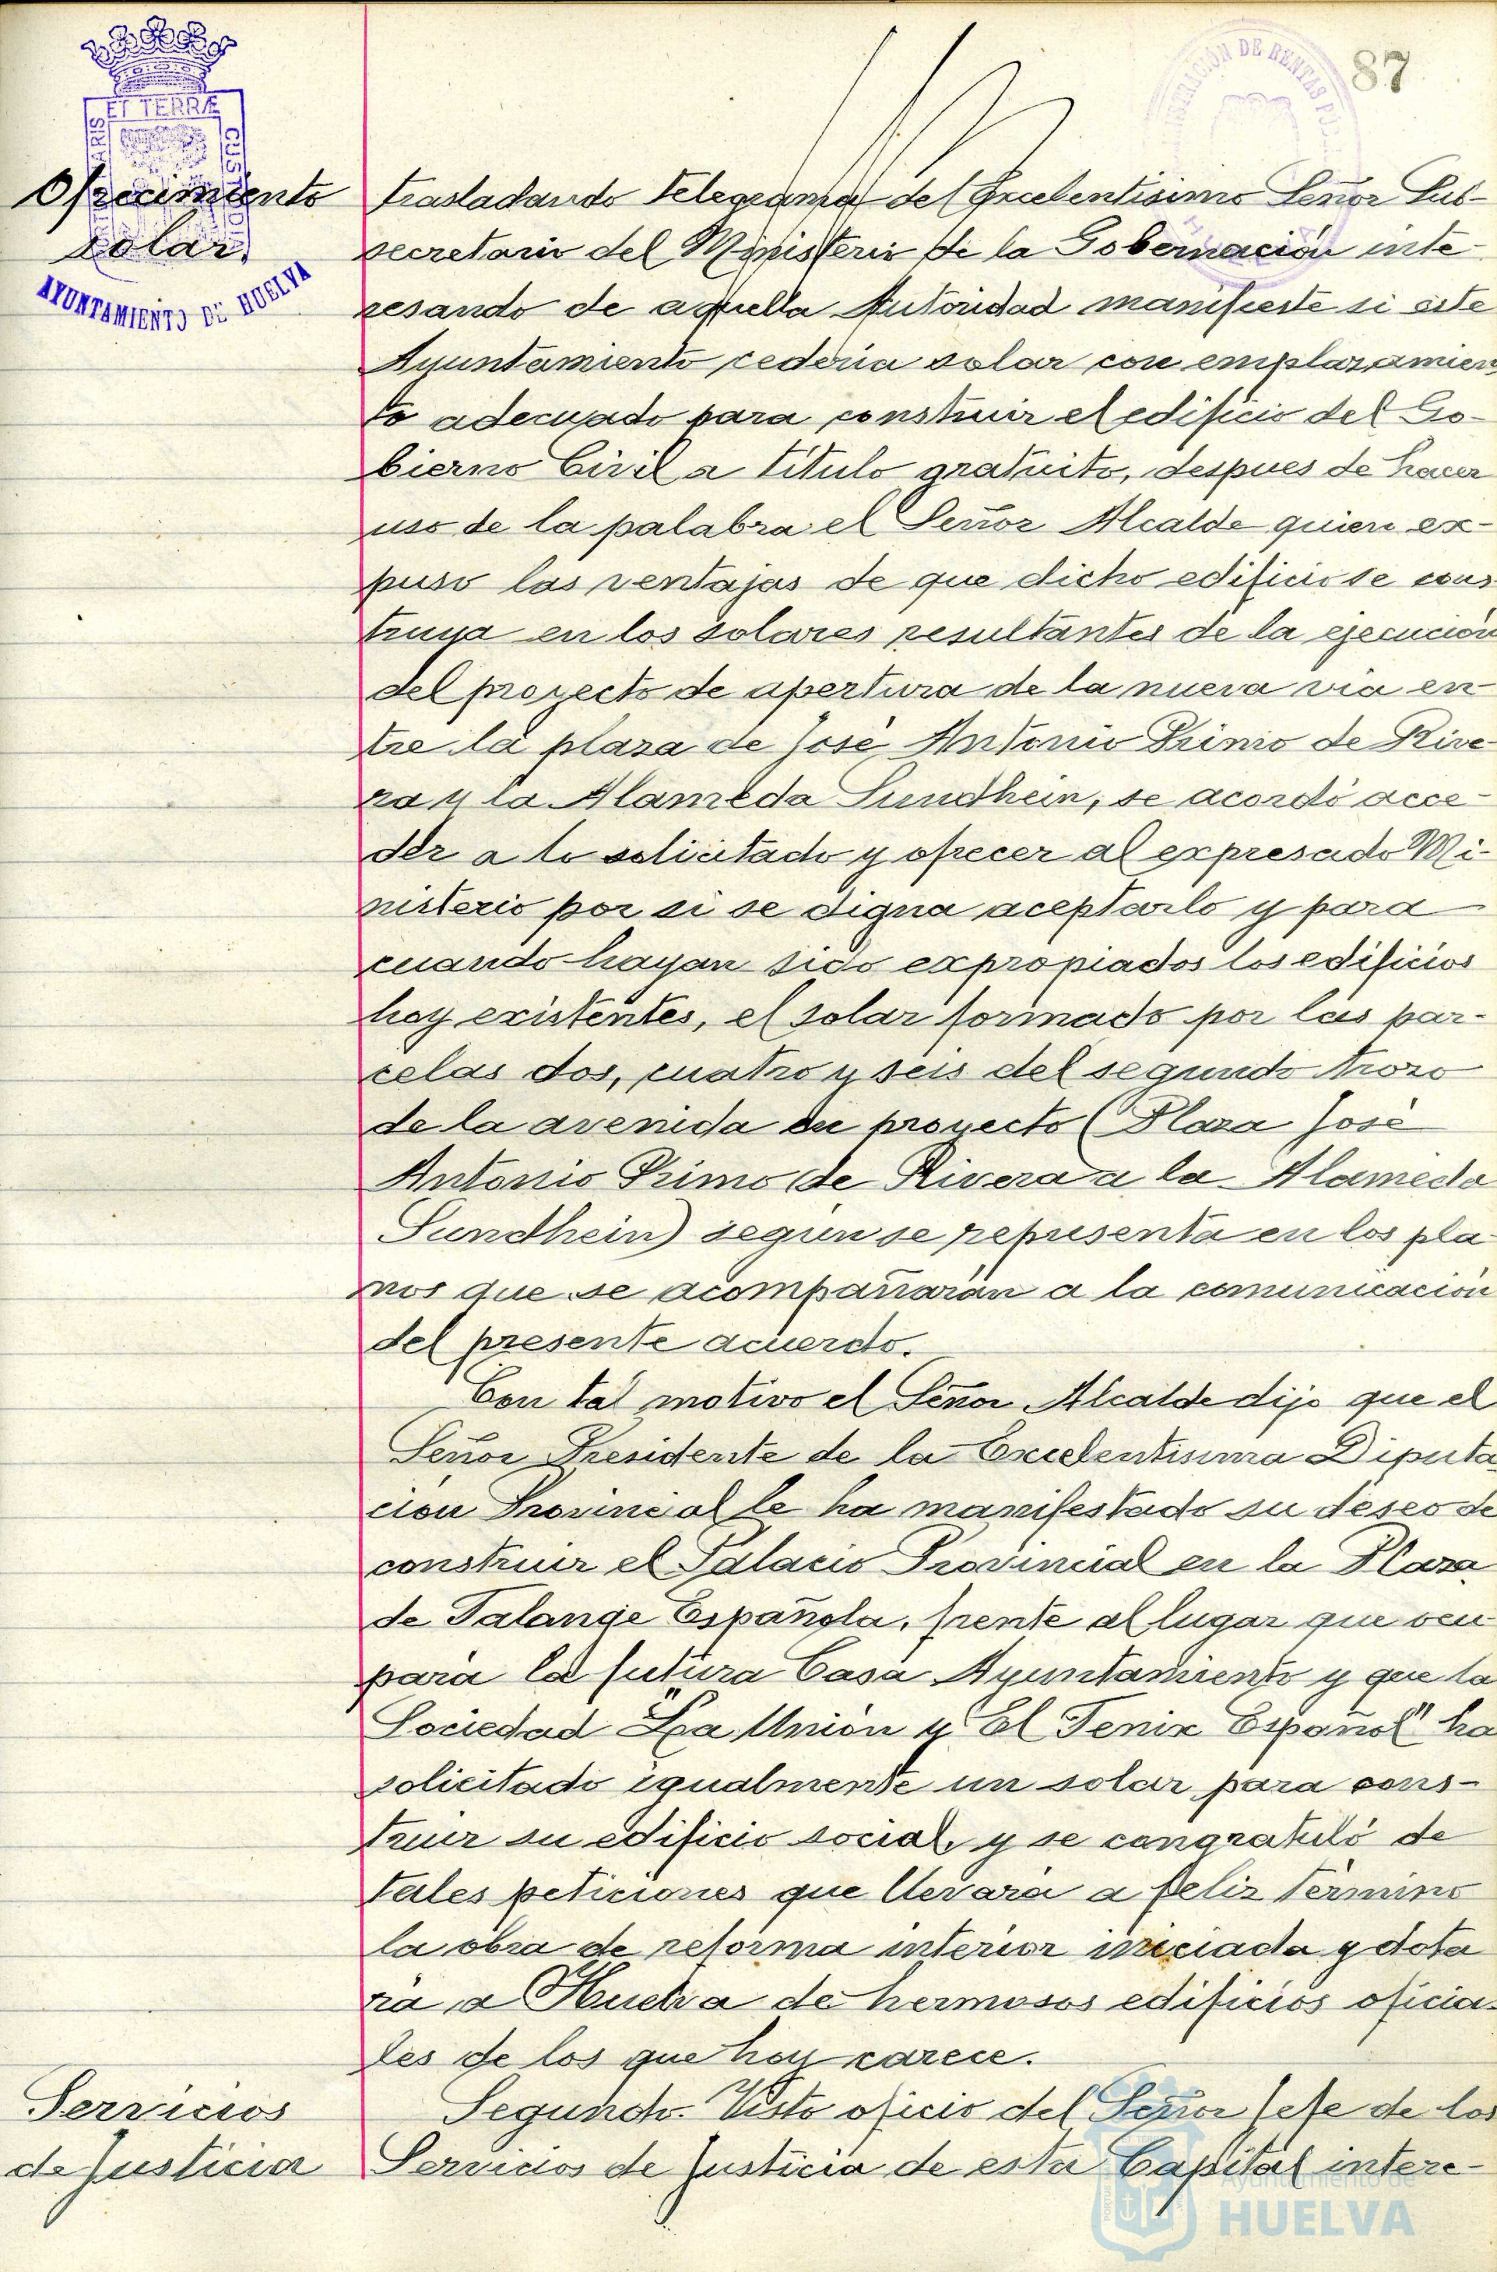 87
ET TERRÆ
CUSTO
AYUNTAMIENTO DE HUELVA
Ofrecimiento
solar.
trasladando telegrama del Excelentisimo Señor Sub-
secretario del Ministerio de la Gobernación inte-
resando de aquella Autoridad manifieste si este
Ayuntamiento cederia solar con emplazamien
to adecuado para construir el edificio del Go-
bierno Civil a titulo gratuito, despues de hacer
uso de la palabra el Señor Alcalde quien ex-
puso las ventajas de que dicho edificio se cons
truya en los solares resultantes de la ejecución
del proyecto de apertura de la nueva via en-
tre la plaza de José Antonio Primo de Rive-
ra y la Alameda Sundhein, se acordó acce-
der a lo solicitado y ofrecer al expresado Mi-
nisterio por si se digna aceptarlo y para
cuando hayan sido expropiados los edificios
hoy existentes, el solar formado por las par-
celas dos, cuatro y seis del segundo trozo
de la avenida en proyecto (Plaza José
Antonio Primo de Rivera a la Alameda
Sundhein) según se representa en los pla
nos que se acompañarán a la comunicación
del presente acuerdo.
Con tal motivo el Señor Alcalde dijo que el
Señor Presidente de la Excelentisima Diputa
cion Provincial le ha manifestado su deseo de
construir el Palacio Provincial en la Plaza
de Falange Española, frente al lugar que ocu
para la futura Casa Ayuntamiento y que la
Sociedad "La Unión y El Fenix Español" ha
solicitado igualmente un solar para cons-
truir su edificio social, y se congratuló de
tales peticiones que llevará a feliz término
la obra de reforma interior iniciada y dota
rá a Huelva de hermosos edificios oficia-
les de los que hoy carece.
Servicios
de Justicia
Segundo. Visto oficio del Señor Jefe de los
Servicios de Justicia de esta Capital intere-
Ayuntamiento de
HUELVA